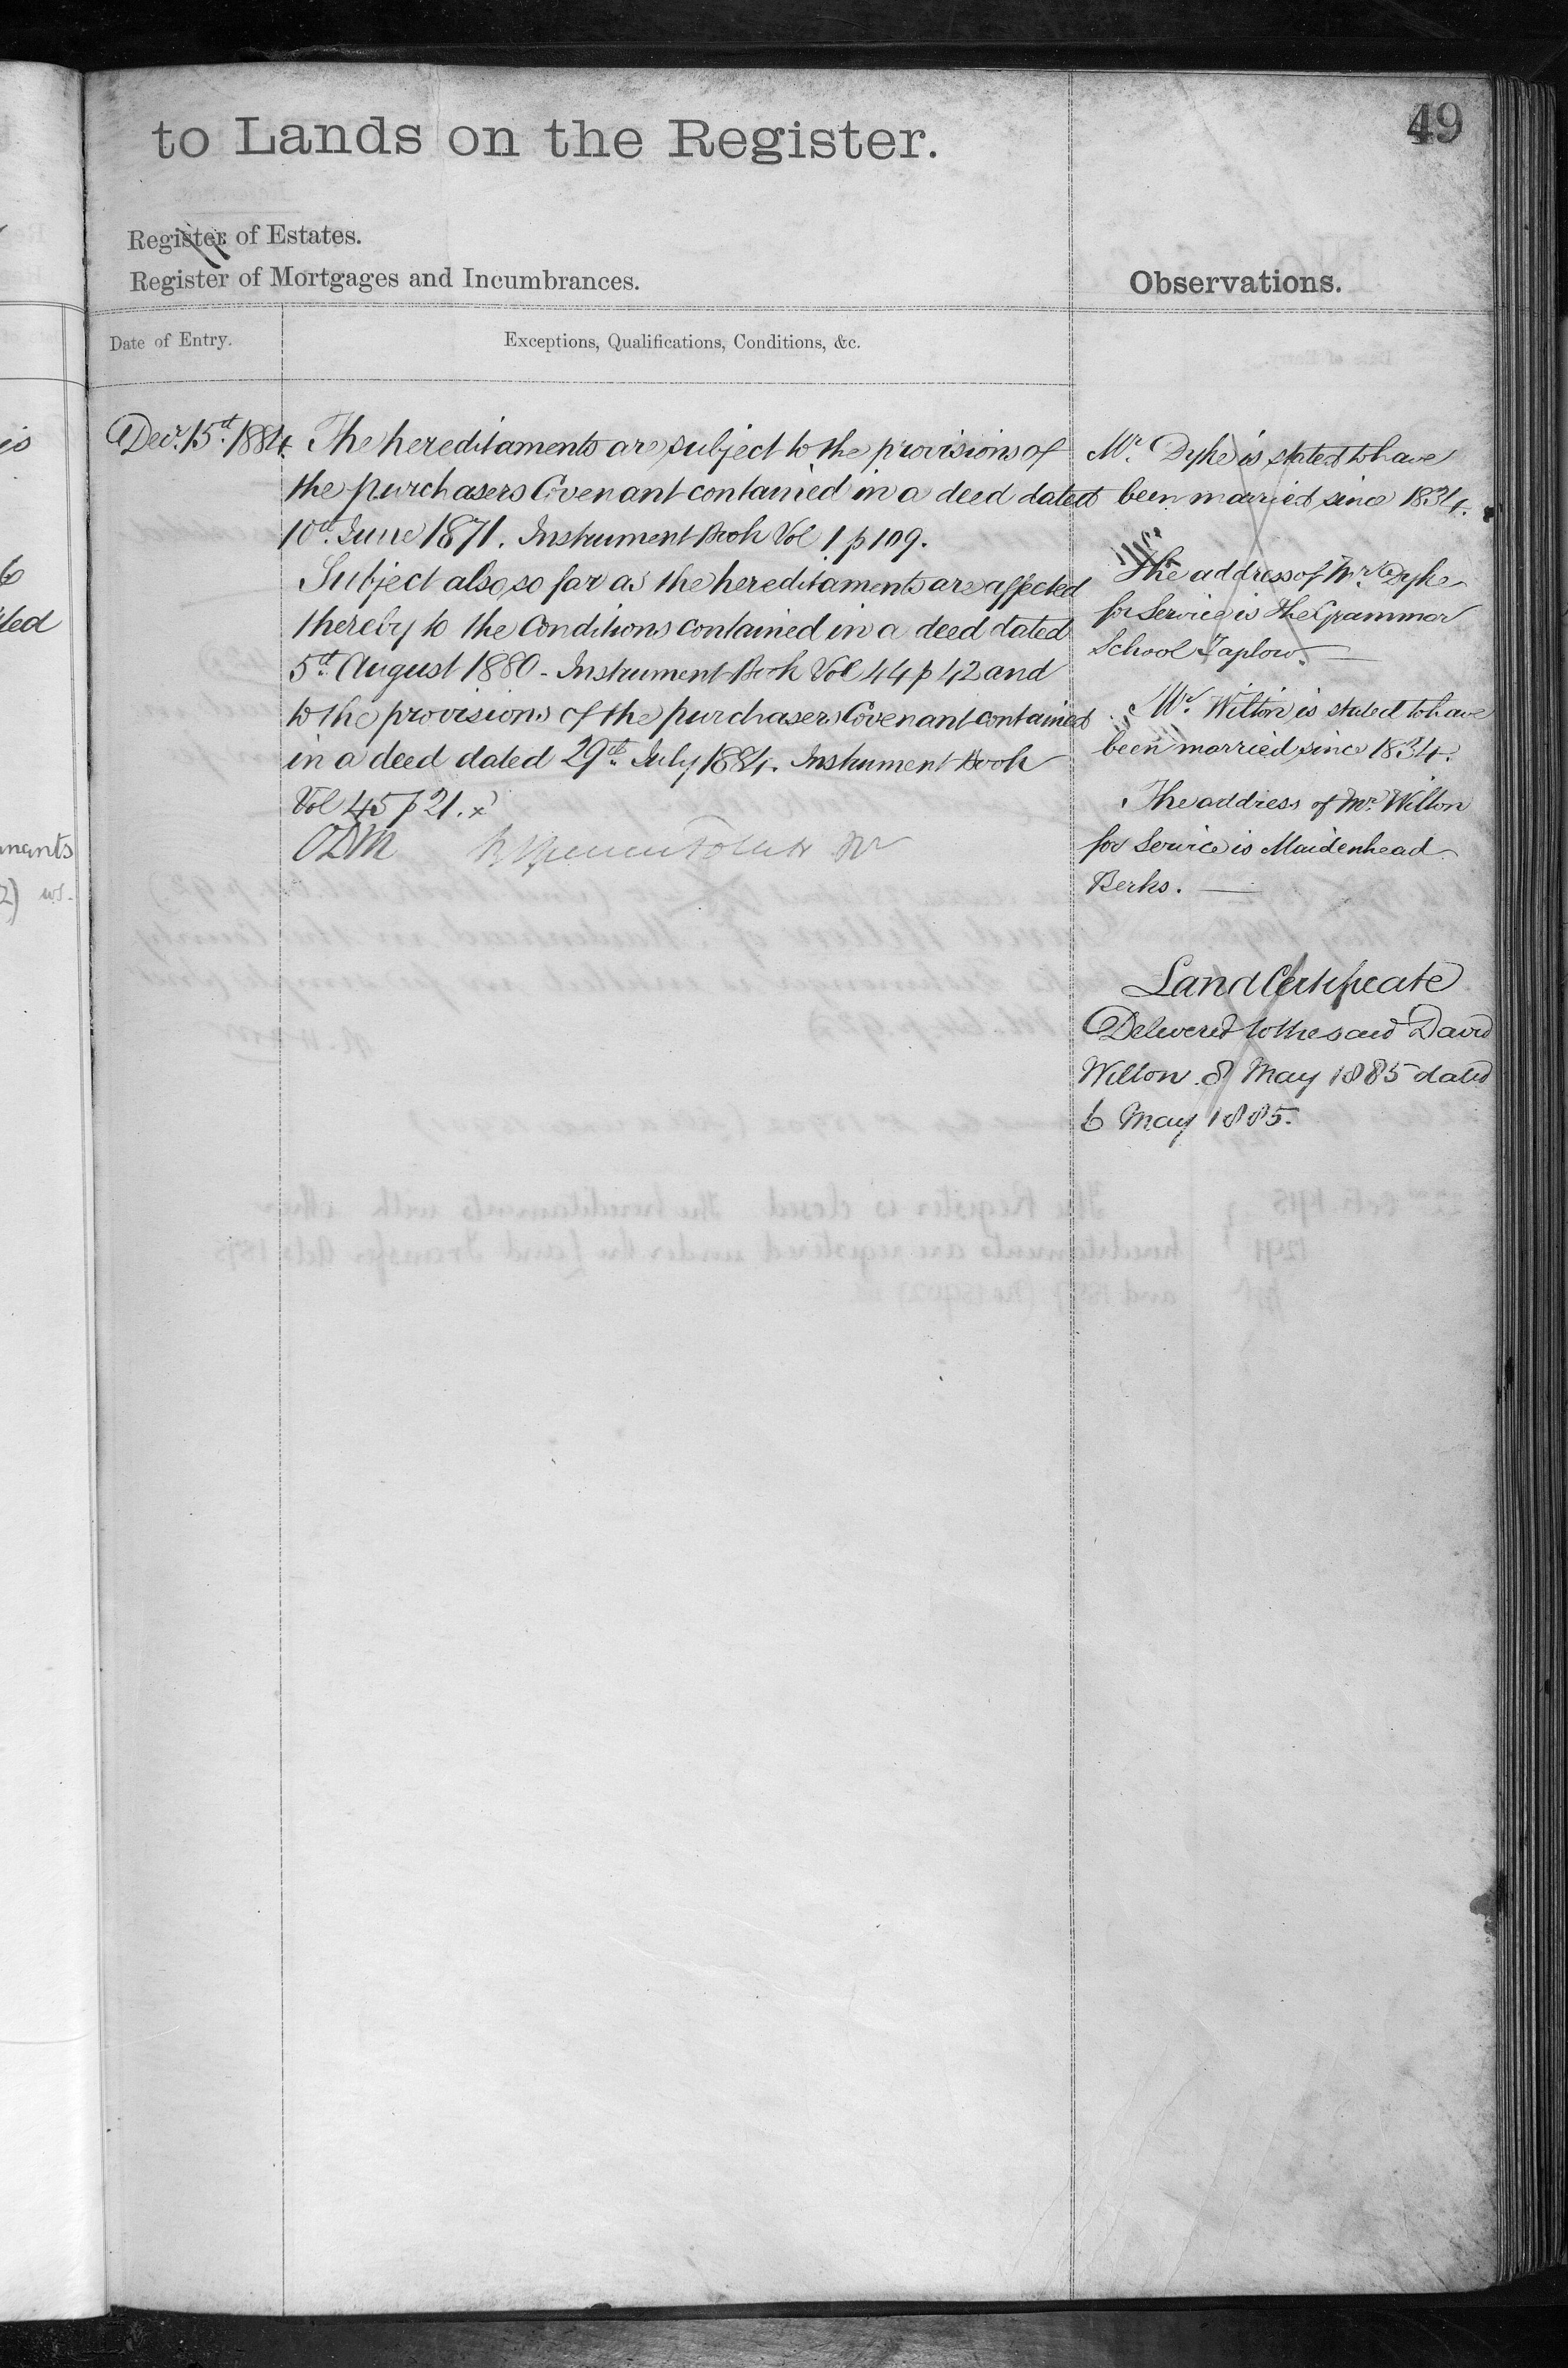 49
to Lands on the Register.
Register of Estates.
Register of Mortgages and Incumbrances.
Observations.
Date of Entry.
Exceptions, Qualifications, Conditions, &c.
Decr. 15th. 1884.
The hereditaments are subject to the provisions of
the purchasers Covenant contained in a deed dated
10th. June 1871. Instrument Book Vol 1 p 109.
Subject also, so far as the hereditaments are affected
thereby to the Conditions contained in a deed dated
5th. August 1880 - Instrument Book Vol 44 p 42 and
to the provisions of the purchasers Covenant contained
in a deed dated 29th. July 1884. Instrument Book
Vol 45 p 21. x
Mr. Dyke is stated to have
been married since 1834.
The address of Mr. Dyke
for Service is The Grammar
School Taplow.
Mr. Wilton is stated to have
been married since 1834.
The address of Mr. Wilton
for Service is Maidenhead
Berks.
Land Certificate
Delivered to the said David
Wilton 8 May 1885 dated
6 May 1885.